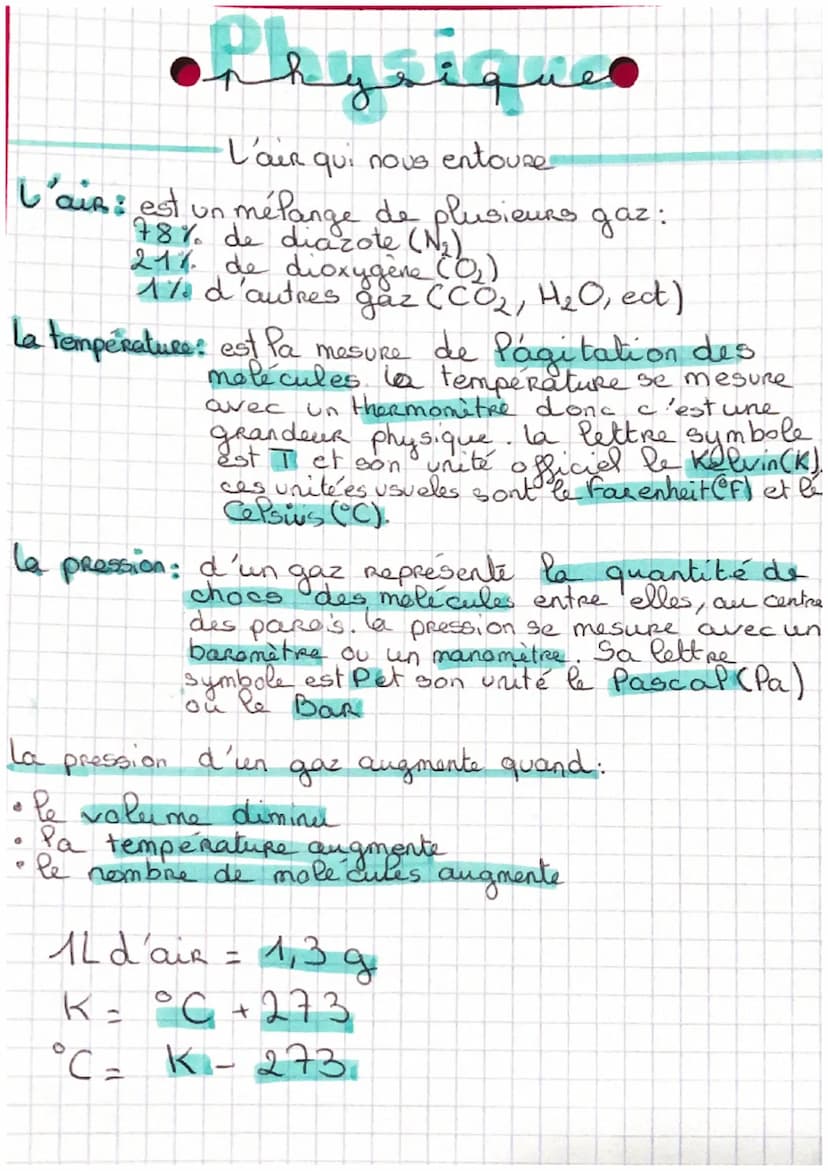 Physique
physique
L'air qui nous entoure
L'air : est un mélange de plusieurs gaz :
78% de diazote (N₂)
21% de dioxygène (O₂)
1% d'autres gaz (CO₂, H₂O, ect)
La température : est la mesure de l'agitation des
molécules. la température se mesure
avec un thermomètre donc c'est une
grandeur physique. la lettre symbole
est T et son unité officiel le Kelvin (K).
ces unitées usueles sont le Farenheit (°F) et le
Celsius (°C).
La pression : d'un gaz représente la quantité de
chocs des molécules entre elles, au contre
des parois. la pression se mesure avec un
baromètre ou un manomètre. Sa lettre
symbole est P et son unité le Pascal (Pa)
ou le Bar
La pression d'un gaz augmente quand :
• le volume diminu
• la température augmente
• le nombre de molécules augmente
1L d'air = 1,3 g
K = °C + 273
°C = K - 273